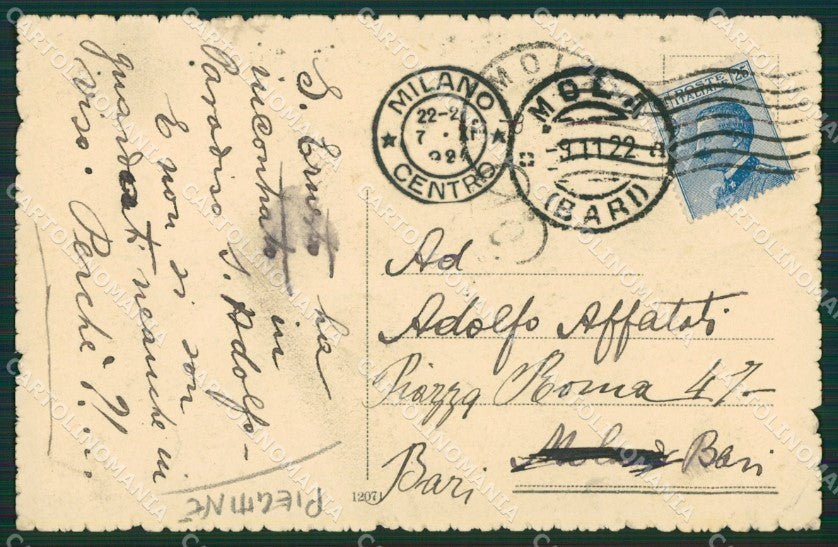 S. Ernesto ha
incontrato in
Paradiso S. Adolfo-
E non si son
guardati neanche in
viso. Perchè?! ...
PIEGHINE
MILANO
22-2
7 . II
922
CENTRO
MOLA
9.11.22
(BARI)
POSTE ITALIANE
25
Ad
Adolfo Affatati
Piazza Roma 47-
Bari
Bari
12071
CARTOLINOMANIA